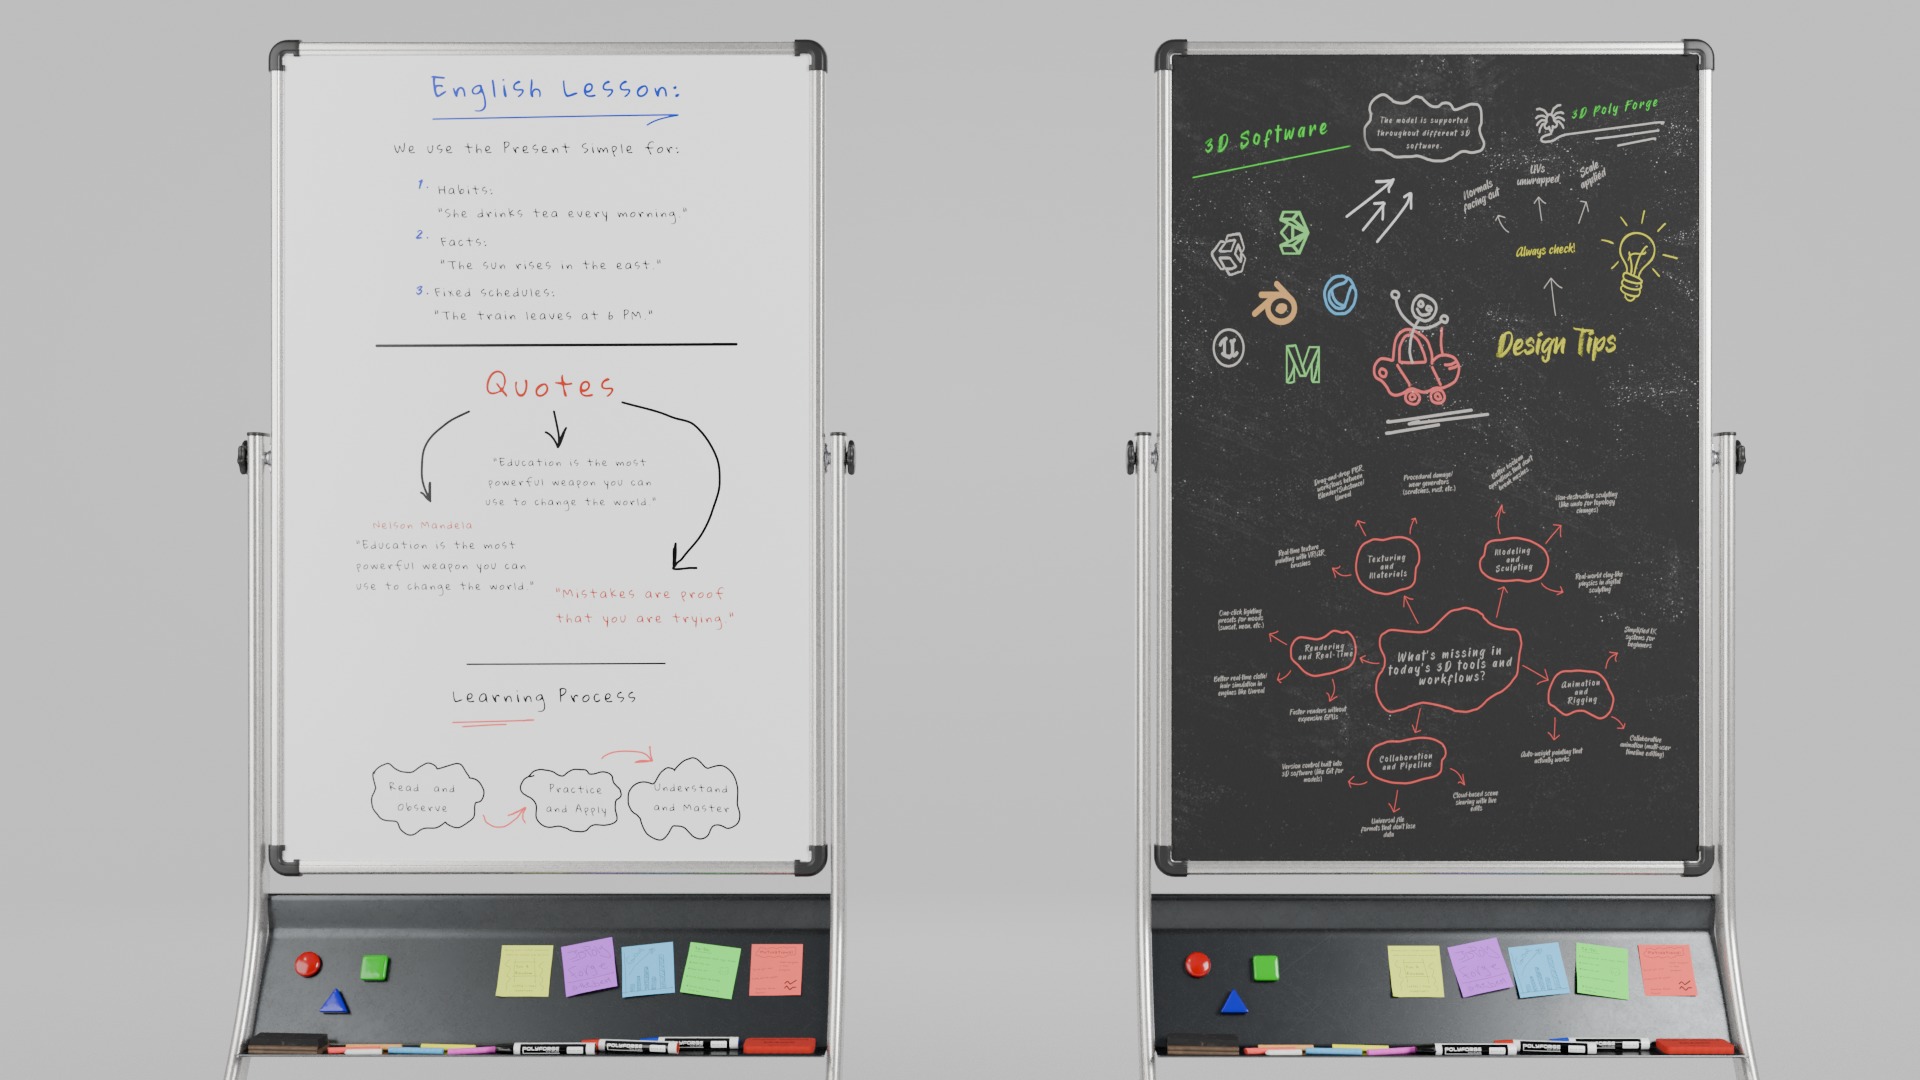 English Lesson:
We use the Present Simple for:
1. Habits:
"She drinks tea every morning"
2. Facts:
"The sun rises in the east."
3. Fixed schedules:
"The train leaves at 6 PM."
Quotes
"Education is the most
powerful weapon you can
use to change the world."
Nelson Mandela
"Education is the most
powerful weapon you can
use to change the world."
"Mistakes are proof
that you are trying."
Learning Process
Read and
Observe
Practice
and Apply
Understand
and Master
3D Software
The model is supported
throughout different 3D
software.
3D Poly Forge
Normals
facing out
UVs
unwrapped
Scale
applied
Always check!
Design Tips
U
M
Drag-and-drop PBR
workflows between
Blender/Substance/
Unreal
Procedural damage/
wear generators
(scratches, rust, etc.)
Better boolean
operations that don't
break meshes
Non-destructive sculpting
(like undo for topology
changes)
Real-time texture
painting with VR/AR
brushes
Texturing
and
Materials
Modeling
and
Sculpting
Real-world clay-like
physics in digital
sculpting
One-click lighting
presets for moods
(sunset, neon, etc.)
Rendering
and Real-Time
What's missing in
today's 3D tools and
workflows?
Simplified IK
systems for
beginners
Better real-time cloth/
hair simulation in
engines like Unreal
Faster renders without
expensive GPUs
Animation
and
Rigging
Auto-weight painting that
actually works
Collaborative
animation (multi-user
timeline editing)
Collaboration
and Pipeline
Version control built into
3D software (like Git for
models)
Cloud-based scene
sharing with live
edits
Universal file
formats that don't lose
data
POLYFORGE
POLYFORGE
POLYFORGE
POLYFORGE